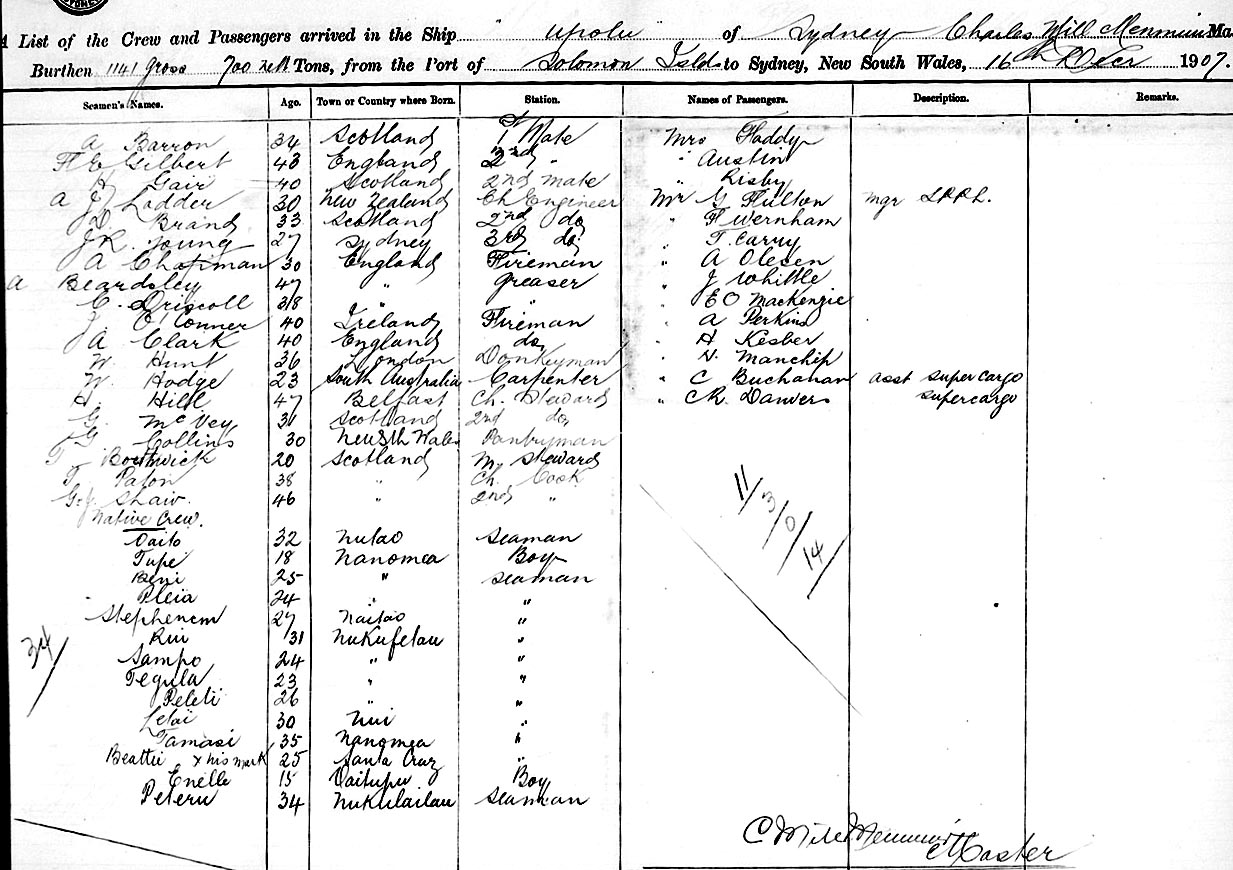 A List of the Crew and Passengers arrived in the Ship " Upolu of Sydney Charles Mill Menmuir Ma
Burthen 1141 Gross 700 nett Tons, from the Port of Solomon Islds to Sydney, New South Wales, 16th Decr 1907.
Seamen's Names. Age. Town or Country where Born. Station. Names of Passengers. Description. Remarks.
A Barron 34 Scotland 1st Mate Mrs Faddy
H E Gilbert 43 England 2nd " " Austin
J Gair 40 Scotland 2nd mate " Risby
A J Ladder 30 New Zealand Ch Engineer Mr G Fulton mgr L.P.P.L.
D. Brand 33 Scotland 2nd do " F Wernham
J R. Young 27 Sydney 3rd do " T. Carry
A Chapman 30 England Fireman " A Olesen
A Beardsley 47 " Greaser " J Whittle
C. Driscoll 38 " " " E O Mackenzie
J. O'Conner 40 Ireland Fireman " A Perkins
A Clark 40 England do " H Kesber
W Hunt 36 London Donkeyman " N. Manchip
W. Hodge 23 South Australia Carpenter " C Buchanan asst supercargo
H. Hill 47 Belfast Ch. Steward " C R. Danvers supercargo
G. McVey 31 Scotland 2nd do
G Collins 30 New Sth Wales Pantryman
T Borthwick 20 Scotland M. Steward
T. Paton 38 " Ch. Cook
G. J. Shaw 46 " 2nd "
Native Crew.
Vaito 32 Nutao Seaman
Tupe 18 Nanomea Boy
Beni 25 " Seaman
Pleia 24 " "
Stephenem 27 Naitao "
Rui 31 Nukufetau "
Sampo 24 " "
Tegula 23 " "
Peleti 26 " "
Letai 30 Nui "
Tamasi 35 Nanomea "
Beattie x his mark 25 Santa Cruz "
Enelle 15 Vaitupu Boy
Peteru 34 Nukulailau Seaman
11/3/0/14/
34/
C Mill Menmuir
Master